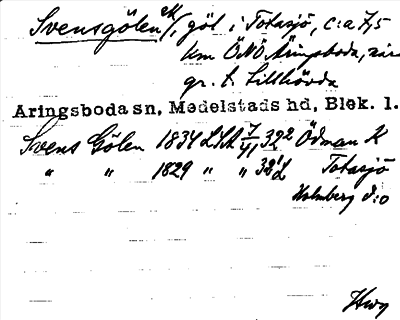 Svensgölen, göl i Totasjö, c:a 7,5
km ÖNÖ Äringsboda, nära
gr. t. Lillhövda
Aringsboda sn, Medelstads hd, Blek. l.
Svens Gölen 1834 LSA 7/41 32 2 Ödman K
" " 1829 " " 32 Totasjö
Holmberg d:o